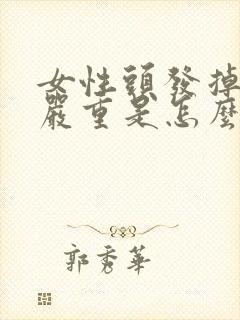 女性頭發掉
嚴重是怎麼
郭秀華